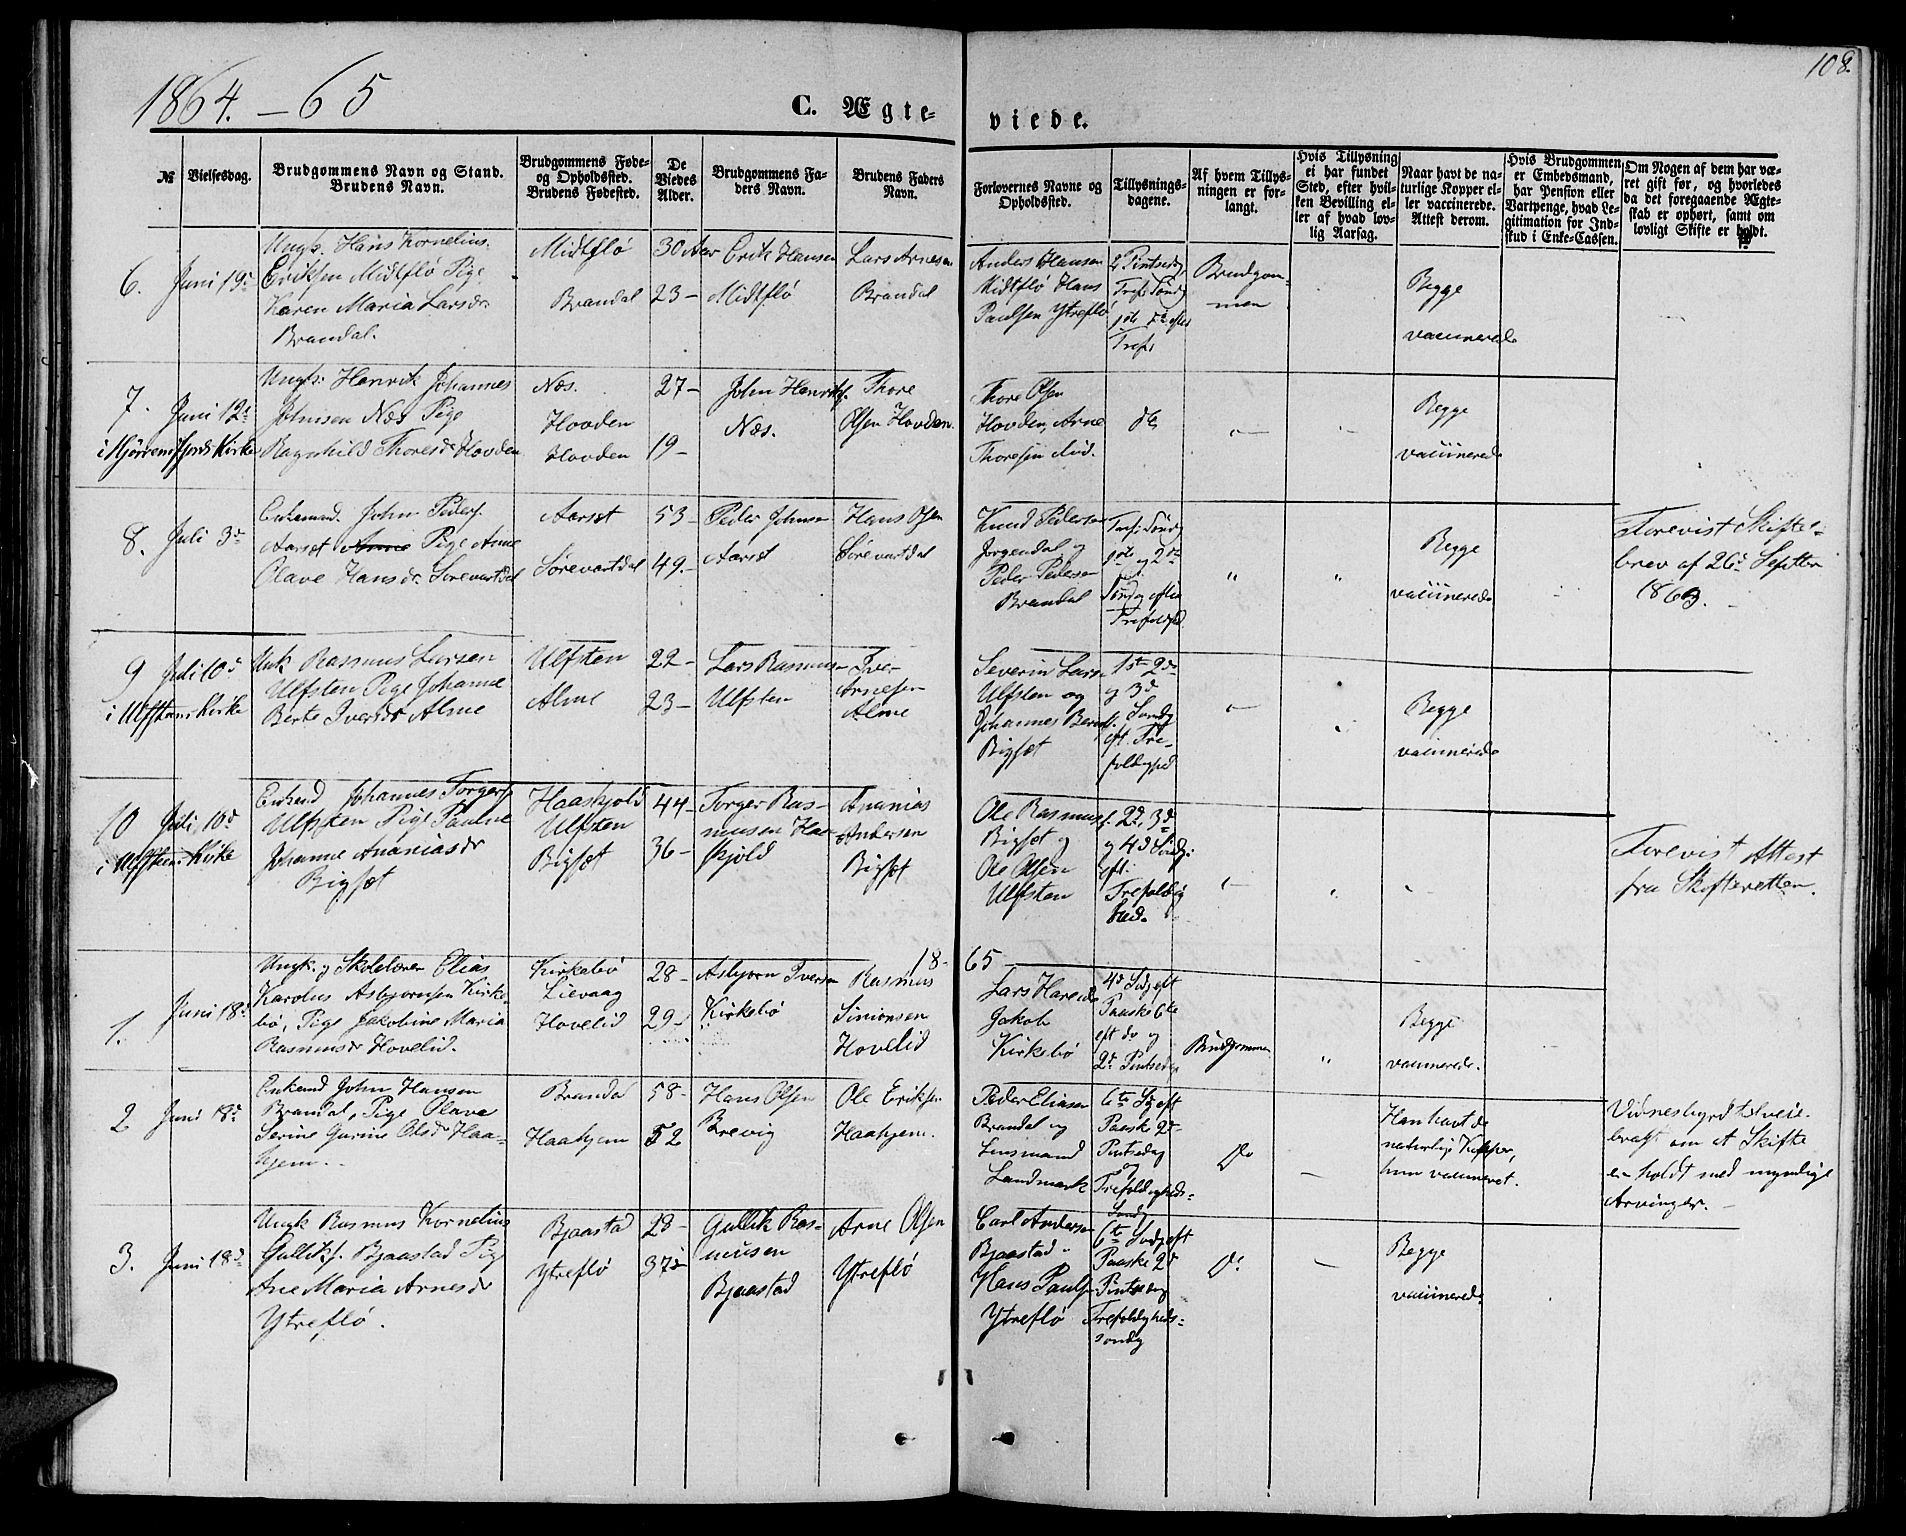 1864. – 65
C. Ægte-
viede.
108.
№
Vielsesdag.
Brudgommens Navn og Stand.
Brudens Navn.
Brudgommens Føde-
og Opholdssted.
Brudens Fødested.
De
Viedes
Alder.
Brudgommens Fa-
ders Navn.
Brudens Faders
Navn.
Forlovernes Navne og
Opholdssted.
Tillysnings-
dagene.
Af hvem Tillys-
ningen er for-
langt.
Hvis Tillysning
ei har fundet
Sted, efter hvil-
ken Bevilling el-
ler af hvad lov-
lig Aarsag.
Naar havt de na-
turlige Kopper el-
ler vaccinerede.
Attest derom.
Hvis Brudgommen
er Embedsmand,
har Pension eller
Vartpenge, hvad Le-
gitimation for Ind-
skud i Enke-Cassen.
Om Nogen af dem har væ-
ret gift før, og hvorledes
da det foregaaende Ægte-
skab er ophørt, samt om
lovligt Skifte er holdt.
6.
Juni 19d
Ungk. Hans Kornelius
Eriksen Midtflø Pige
Karen Maria Larsdr
Brandal.
Midtflø
Brandal
30 Aar
23 –
Erik Hansen
Midtflø
Lars Arnesen
Brandal
Anders Hansen
Midtflø Hans
Paulsen Ytreflø
2 Pintsedg
Tref: Søndg
1ste Sd efter
Tref.
Brudgom-
men
Begge
vaccinerede
7.
Juni 12d
i Hjørrensfjords Kirke
Ungk. Henrik Johannes
Johnsen Næs Pige
Ragnhild Thoresdr Hovden
Næs.
Hovden
Hovden
27 –
19 –
John Henriks.
Næs.
Thore
Olsen Hovden.
Thore Olsen
Hovden, Arne
Thoresen ibid.
do
Begge
vaccinerede
8.
Juli 3d
Enkemand John Peders.
Aarset Anne Pige Anne
Olave Hansdr Sørevartdal
Aarset
Sørevartdal
53 –
49. –
Peder Johnsen
Aarset
Hans Olsen
Sørevartdal
Knud Pedersen
Jørgendal og
Peder Pedersen
Brandal
Tref: Søndg
1ste og 2den
Søndag efter
Trefoldhd
"
"
Begge
vaccinerede
Forevist Skifte-
brev af 26d Septbr
1863.
9
Juli 10d
i Ulfstens Kirke
Ungk Rasmus Larsen
Ulfsten Pige Johanne
Berte Iversdr Alme
Ulfsten
Alme
22 –
23 –
Lars Rasmusen
Ulfsten
Iver
Arnesen
Alme
Severin Larsen
Ulfsten og
Johannes Bernts.
Bigset
1ste 2d
og 3d
Søndg
eft. Tre-
foldighed
Begge
vaccinerede
10
Juli 10d
i Ulfstens Kirke
Enkemd Johannes Torgers.
Ulfsten Pige Pauline
Johanne Ananiasdr
Bigset
Haaskjold
Ulfsten
Bigset
44 –
36 –
Torger Ras-
musen Haa-
skjold
Ananias
Andersen
Bigset
Ole Rasmus.
Bigset og
Ole Olsen
Ulfsten
2d, 3d
og 4d Søndg
eft.
Trefoldig-
hed.
Forevist Attest
fra Skifteretten.
18-
65 –
1.
Juni 18d
Ungk. og Skolelærer Elias
Karolus Asbjørnsen Kirke-
bø, Pige Jakobine Maria
Rasmusdr Hovelid.
Kirkebø
Lievaag
Hovelid
28 –
29 –
Asbjørn Iversen
Kirkebø
Rasmus
Simonsen
Hovelid
Lars Hareide
Jakob
Kirkebø
4d Sdg eft
Paaske 6te
eft do og
2d Pintsedg
Brudgommen
"
Begge
vaccinerede.
2
Juni 18d
Enkemd John Hansen
Brandal, Pige Olave
Serine Gurine Olsdr Haa-
hjem.
Brandal
Haahjem
58 –
52
Hans Olsen
Brevig
Ole Eriksen
Haahjem.
Peder Eliasen
Brandal og
Lensmand
Landmark
6te Sdg eft
Paaske 2d
Pintsedag
og
Trefoldigheds-
Søndg
Do
–
Han havt de
naturlige Kopper,
hun vaccineret.
Vidnesbyrd tilveie-
bragt om at Skifte
er holdt med myndige
Arvinger. –
3.
Juni 18d
Ungk Rasmus Kornelius
Golliks. Bjaastad Pige
Ane Maria Arnesdr
Ytreflø.
Bjaastad
Ytreflø
28 –
37 –
Gullik Ras-
musen
Bjaastad
Arne Olsen
Ytreflø
Carl Andersen
Bjaastad
Hans Pauls.
Ytreflø
6te Sndg eft
Paaske 2d
Pintsedag
Trefoldigheds-
søndg
Do
–
Begge
vaccinerede